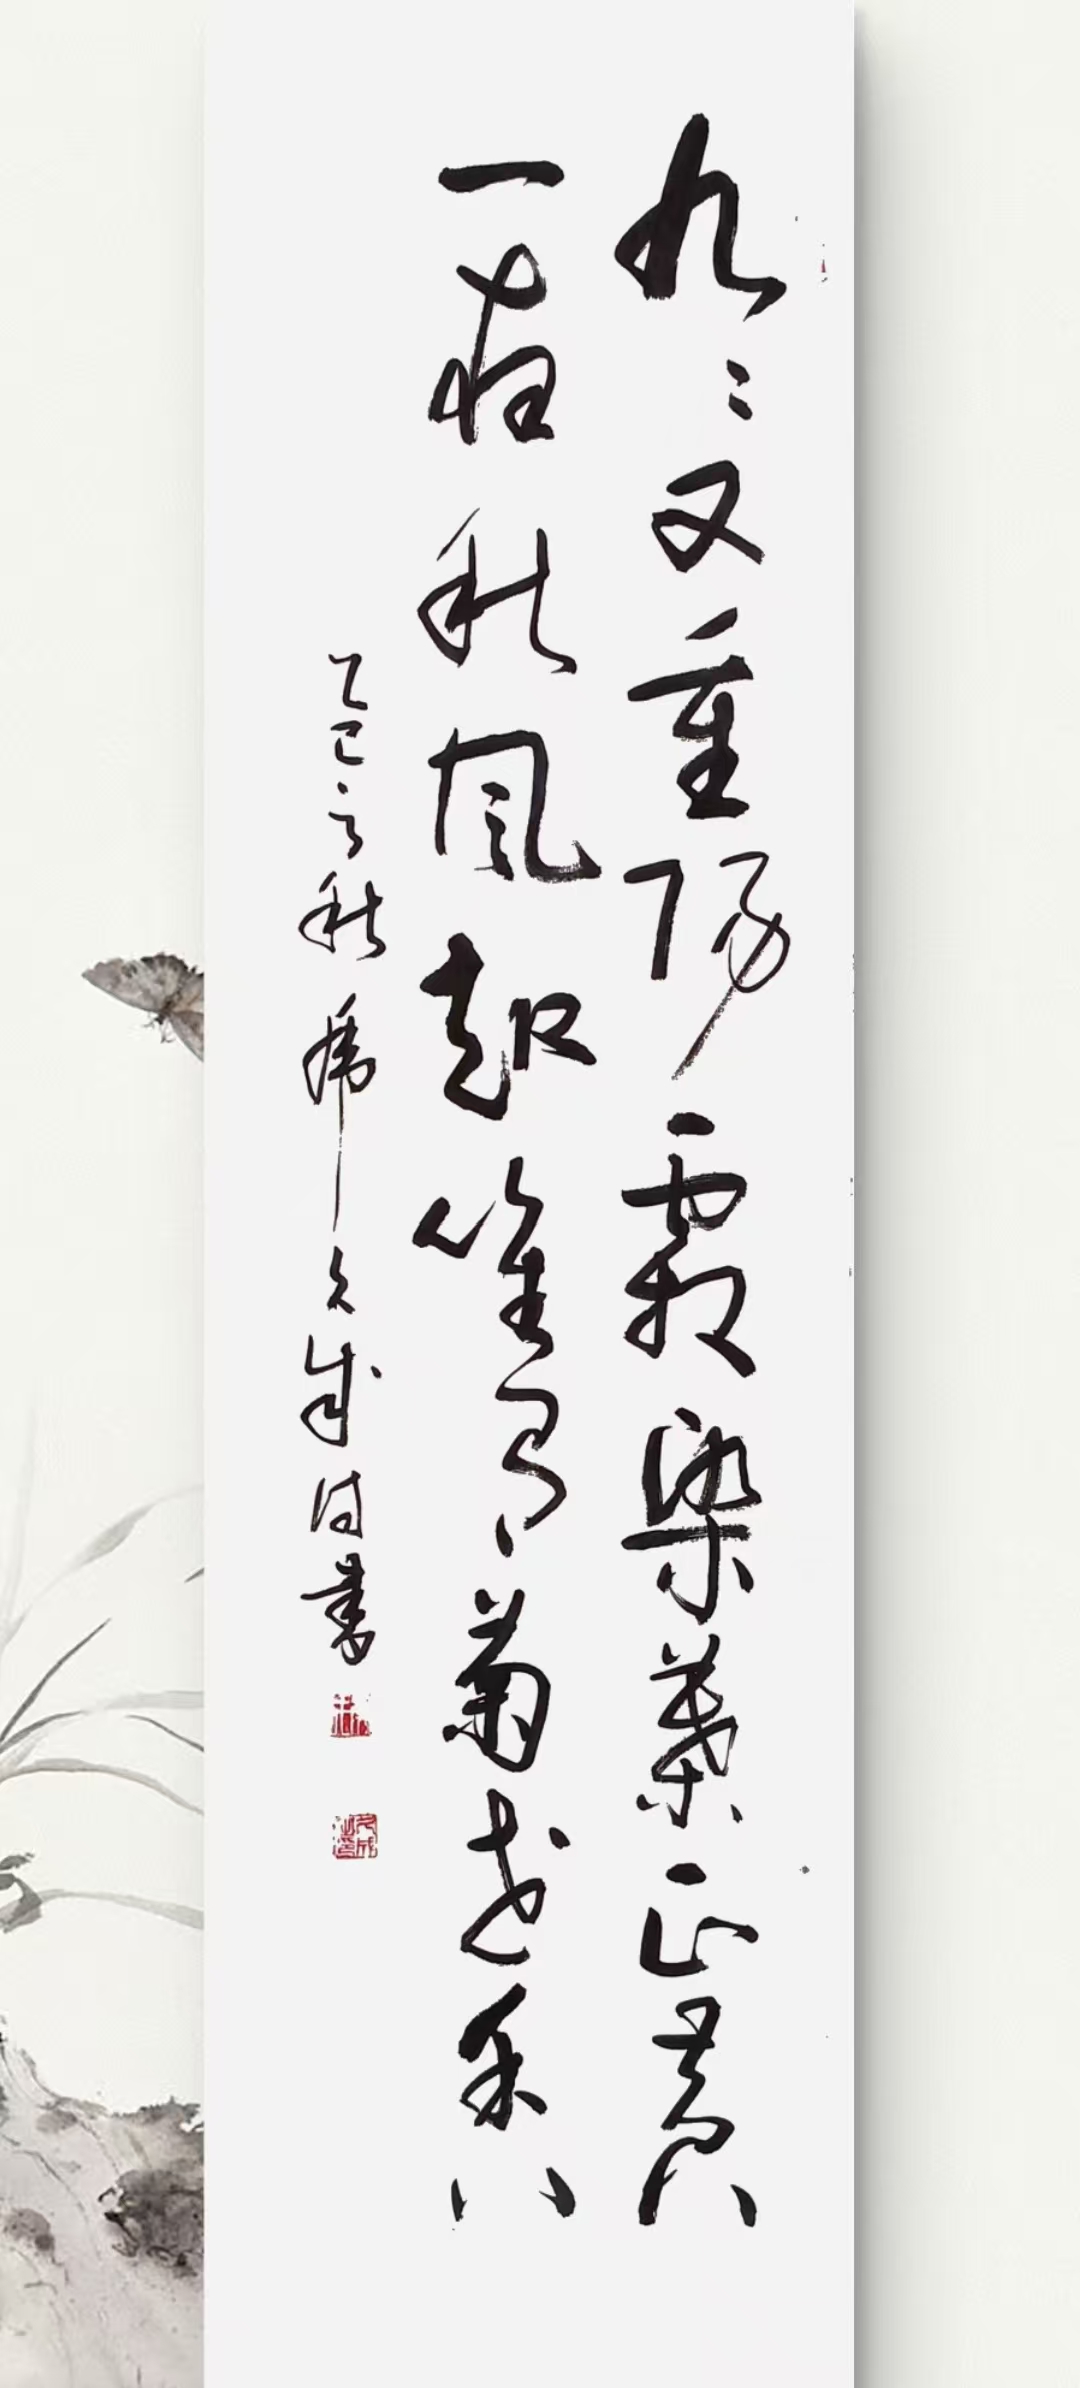 九九又重阳霜染叶正黄
一夜秋风起唯有菊花香
乙巳之秋 文成诗书